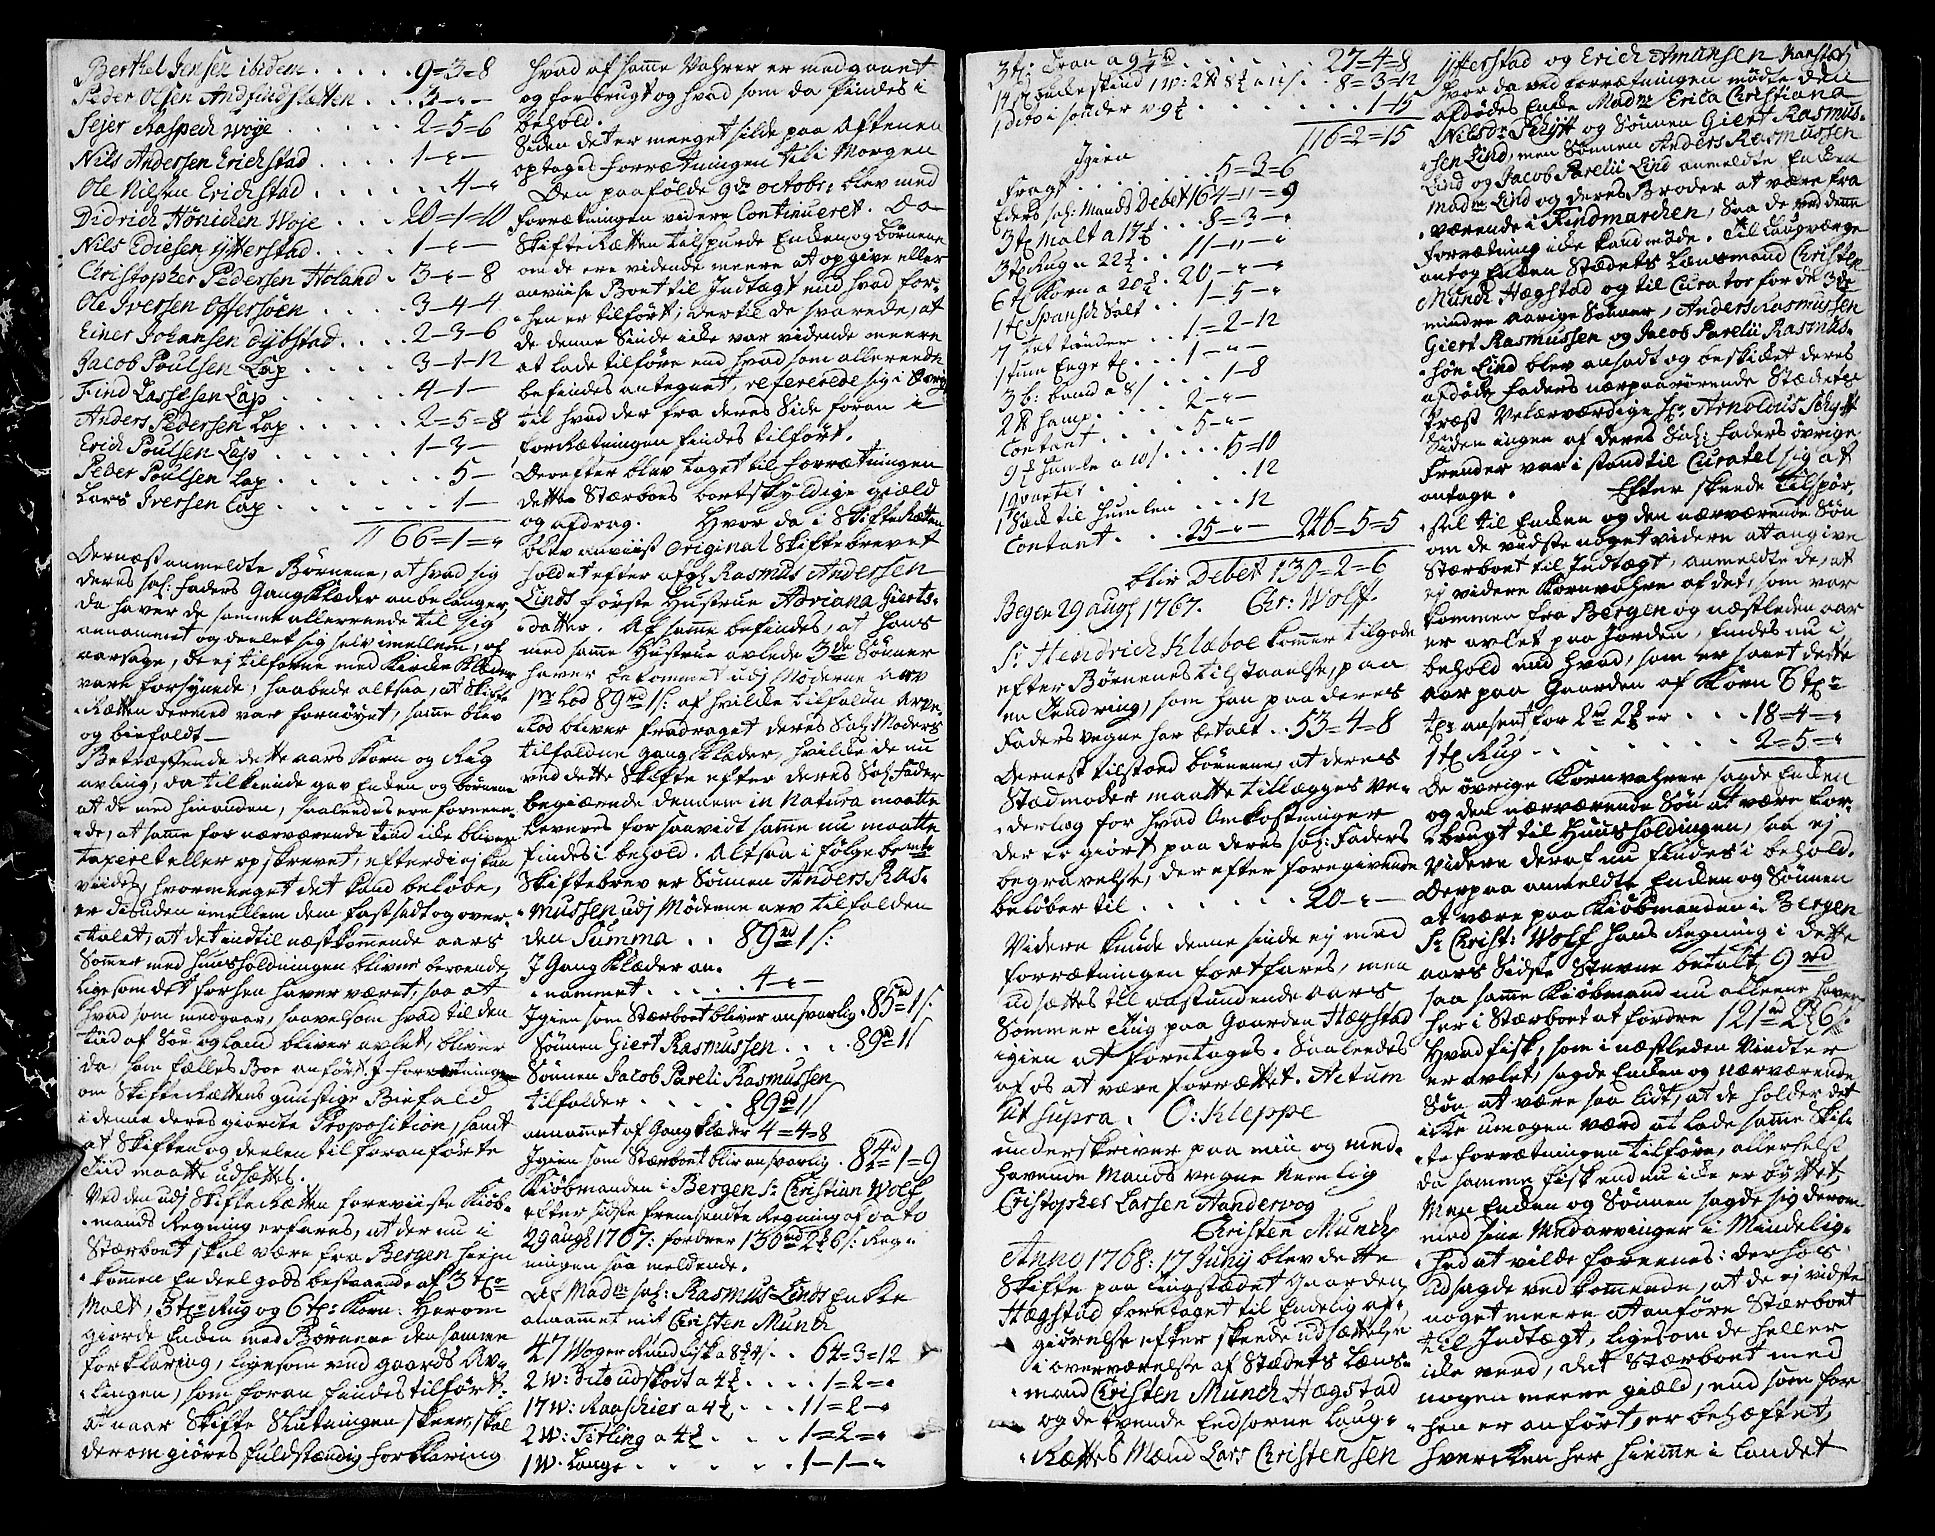 Berthel Jensen ibidem . . . . . 9=3=8
Peder Olsen Andfindsletten . . . 3-"-
Sejer Kaspech Woje . . . . . 2=5=6
Nils Andersen Erichstad . . . . 1-"-
Ole Nilsen Erichstad . . . . . . 4-"
Didrich Hönichen Woje . . . 20=1=10
Nils Ediesen Ytterstad . . . . 1-"-
Christopher Pedersen Høland . 3-"-8
Ole Iversen Offersöen . . . . 3-4-4
Einer Johansen Dybstad . . . 2-3-6
Jacob Poulsen Lap . . . . . 3-1-12
Find Lassesen Lap . . . . . 4-1-
Anders Pedersen Lap . . . . 2=5=8
Erich Poulsen Lap . . . . . 1-3-
Peder Poulsen Lap . . . . . . 5-
Lars Iversen Lap . . . . . . 1-
66=1="
Dernæst anmeldte Börnene, at hvad sig
deres sal: Faders Gang Klæder anbelanger,
da haver de samme allerrede til sig
annammet og deelet sig selv imellem, af
aarsage, de ej tilforne med Klæder
vare forsynede, haabede altsaa, at Skifte
Retten dermed var fornøyet, samme blev
og biefaldt
Betræffende dette aars Korn og Rug
avling, da tilkiende gav Enken og börnene
at de med hinanden, saaledes ere foreene-
de, at samme for nærværende tiid icke bliver
taxeret eller opskrevet, efterdi ej kan
viides, hvormeget det kand beløbe,
er desuden imellem dem fastsadt og over-
talet, at det indtil næstkommende aars
Sommer med huusholdningen bliver beroende
ligesom det forhen haver været, saa at
hvad som medgaar, saavelsom hvad til den
tiid af Söe og land bliver avlet, bliver
da, som fælles Boe anfört J forretningen
om Skifte Rættens gunstige Biefald
i denne deres giorde Proposition, samt
at Skiften og deelen til foranförte
Tiid maatte udsættes.
Ved den udj Skifte Retten foreviiste Kiöb-
mands Regning erfares, at der nu i
Stærboet skal være fra Bergen hiem
kommen En deel gods bestaaende af 3 tr
Malt, 3 tr Rug og 6 tr: Korn: Herom
giorde Enken med Börnene den samme
forklaring, ligesom ved gaards Av-
lingen, som foran findes tilfört.
at naar Skifte Slutningen skeer, skal
derom giöres fuldstændig forklaring
hvad af samme Vahrer er medgaaet
og forbrugt og hvad som da findes i
behold.
Siden det er meeget silde paa Aftenen
optages forrætningen til i Morgen
Den paafölde 9de octobr: blev med
forrætningen videre Continueret. Da
Skifte Rætten tilspurde Enken og börnene
om de ere vidende meere at opgive eller
anviise Boet til Indtægt end hvad for-
hen er tilfört; dertil de svarede, at
de denne Sinde icke var vidende meere
at lade tilföre end hvad som allereede
befindes antegnet, refererede sig i övrigt
til hvad der fra deres Side foran i
forRætningen findes tilfört.
Derefter blev taget til forrætningen
dette Stærboes bortskyldige giæld
og afdrag. Hvor da i Skifte Retten
blev anviist Original Skiftebrevet
holdet efter afg: Rasmus Andersen
Linds förste Hustrue Adriana Gierts-
datter. Af samme befindes, at hans
med samme Hustrue avlede 3de Sönner
haver bekommet udj Möderne Arv
pr Lod 89rd 1 s: af hvilke tilfaldne Arve
Lod bliver fradraget deres Sal: Moders
tilfaldne gang klæder, hvilke de nu
ved dette Skifte efter deres Sal: Fader
begiærede dennem in Natura maatte
leveres for saavidt samme nu maatte
findes i behold. Altsaa i fölge bemte
Skiftebrev er Sönnen Anders Ras-
mussen udj Möderne arv tilfalden
den Summa . . 89rd 1 s:
I Gang Klæder an-
nammet . . . . . 4-"-
Igien som Stærboet bliver ansvarlig . 85rd 1 s:
Sönnen Giert Rasmussen . . . . 89rd 1 s
Sönnen Jacob Pareli Rasmussen
tilfalder . . . . . 89rd 1 s
annammet af Gangklæder 4=4=8
Igien som Stærboet blir ansvarlig . 84rd=1=9
Kiöbmanden i Bergen Sr Christian Wolf,
efter sidste fremsendte Regning af dato
29 augl 1767: fordrer 130rd 2 6 s: Reg-
ningen saa meldende.
Det Madm sal: Rasmus Linds Enke
annammet mit Christen Münch
47 Woger Rund Fisk a 8 . . 64=3=12
2 W: Dito udskott a 4½ . . . . 1=2="
17 W: Raaschier a 4½ . . . 11=2-"
2 W: Titling a 4½ . . . . 1=2="
1 W Lange . . . . . . 1-1-"
3 t: Tran a 9½rd . . . . . 27=4=8
1 dito i sönder . . . . . 1-15
116=2=15
Igien
Fragt . . . . . . 5=3=6
Eders sal: Mands Debet 164="=9
3 t: Malt a 17½ . . 8=3-"
3 t: Rug a 22½ . . 11-"-"
6 t: Korn a 20½ . 20-"-"
1 t: Spansch Salt . . 1-5-"
7 tet tönder . . . 1=2-12
3 b: band a 8 s . . . . 1-8
2 hamp . . . . 2-"-
Contant . . . . . 5-"-
9 humle a 10 s . . . . 5=10
1 qvarter . . . . . . 12
1 Sæck til Humlen . . . 12
Contant . . 25-"- 246=5=5
bliv Debet 130=2=6
Bergen 29 augl 1767. Chr: Wolf.
Sr Hendrich Klaboe kommer tilgode
efter Börnenes tilstaaelse, paa
en Tendring, som han paa deres
Faders vegne har betalt . 53=4=8
Dernest tilstoed börnene, at deres
Stædmoder maatte tillægges Ve-
derlag for hvad Omkostninger
der er giort paa deres sal: Faders
begravelse, der efter foregivende
belöber til . . . . . 20-"-
Videre kunde denne sinde ej med
forrætningen fortfares, men
udsættes til aastundende Aars
Sommer Ting paa Gaarden Hægstad
igien at foretages. Saaleedes
af os at være forrættet. Actum
Ut supra. O: Kleppe
underskriver paa min og med-
havende Mands vegne Nemlig
Cristopher Larsen Handervog
Christen Münch
Anno 1768: 17 Junij blev dette
Skifte paa Tingstædet Gaarden
Hægstad foretaget til Endelig af-
giörelse efter skeede udsættelse
i overværelse af Stædets Læns-
mand Christen Münch Hægstad
og de tvende Eedsorne Laug-
Rættes Mænd Lars Christensen
Ytterstad og Erich Amunsen Ranstad
hvor da ved forrætningen mödte den
afdödes Enke Madm Erica Christiana
Nilsdr Schytt og Sönnen Giert Rasmus-
sen Lind, men Sönnen Anders Rasmussen
Lind og Jacob Parelii Lind anmeldte Enken
Madm Lind og deres Broder at være fra
værende i Findmarchen, saa de ved denne
forrætning icke kand möde. Til Laugværge
antog Enken Stædets Lænsmand Christen
Münch Hægstad og til Curator for de 3de
mindre aarige Sönner, Anders Rasmussen
Giert Rasmussen og Jacob Parelii Rasmus-
sön Lind blev ansadt og beskicket deres
afdöde Faders nærpaarörende Stædets
Præst Velærværdige Hr. Arnoldus Schytt
Siden ingen af deres Sal: Faders övrige
Frender var i stand til Curatel sig at
antage. Efter skeede tilspör-
sel til Enken og den nærværende Sön
om de vidste noget videre at angive
Stærboet til Indtægt, anmeldte de, at
ej videre Kornvahre af det, som var
kommen fra Bergen og næstleden aar
er avlet paa Jorden, findes nu i
behold med hvad, som er saaet dette
aar paa Gaarden af Korn 6 tr:
tr: ansent for 2 er . . . 18=4-"
1 t: Rug . . . . . . . 2=5="
De övrige Kornvahrer sagde Enken
og den nærværende Sön at være for-
brugt til Huusholdingen, saa ej
videre deraf nu findes i behold.
Derpaa anmeldte Enken og Sönnen
at være paa Kiöbmanden i Bergen
Sr Christ: Wolf hans Regning i dette
aars Sidste Stevne betalt 9 rd
saa samme Kiöbmand nu alleene haver
her i Stærboet at fordre 121rd 2 6 s:
Hvad fisk, som i næstleden Vindter
er avlet, sagde Enken og nærværende
Sön at være saa lidt, at de holder det
icke umagen værd at lade samme Skif-
te forrætningen tilföre, allerhelst
da samme fisk end nu icke er byttet,
Men Enken og Sönnen sagde sig derom
med sine Medarvinger i Mindelig-
hed at vilde foreenes: derhos
udsagde vedkommende, at de ej vidste
noget meere at anföre Stærboet
til Indtægt, ligesom de heller
icke veed, det Stærboet med
nogen meere giæld, end som for
hen er anfört, er behæftet,
hvercken her hiemme i Landet